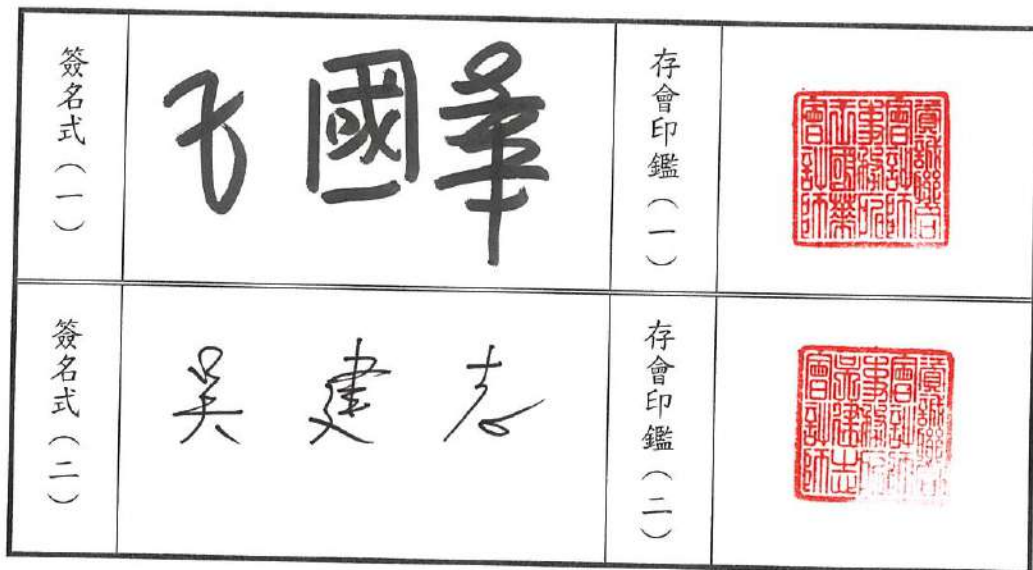 簽名式（一）
王國華
存會印鑑（一）
資誠聯合
會計師
事務所
王國華
會計師
簽名式（二）
吳建志
存會印鑑（二）
資誠聯合
會計師
事務所
吳建志
會計師